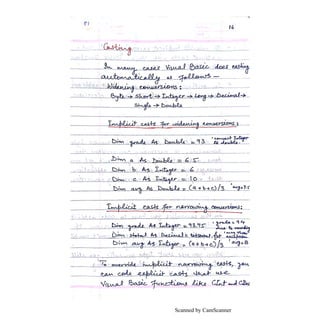 16
Casting
In many cases Visual Basic does casting
automatically as follows —
Widening conversions:
Byte → Short → Integer → Long → Decimal →
Single → Double
Implicit casts for widening conversions:
Dim grade As Double = 93 'convert Integer to double
Dim a As Double = 6.5
Dim b As Integer = 6
Dim c As Integer = 10
Dim avg As Double = (a+b+c)/3 'avg=7.5
Implicit casts for narrowing conversions:
Dim grade As Integer = 93.75 'grade = 94 due to rounding
Dim As Decimal =
Dim avg As Integer = (a+b+c)/3 'avg=8
To override implicit narrowing casts, you
can code explicit casts that use
Visual Basic functions like CInt and CDec
Scanned by CamScanner